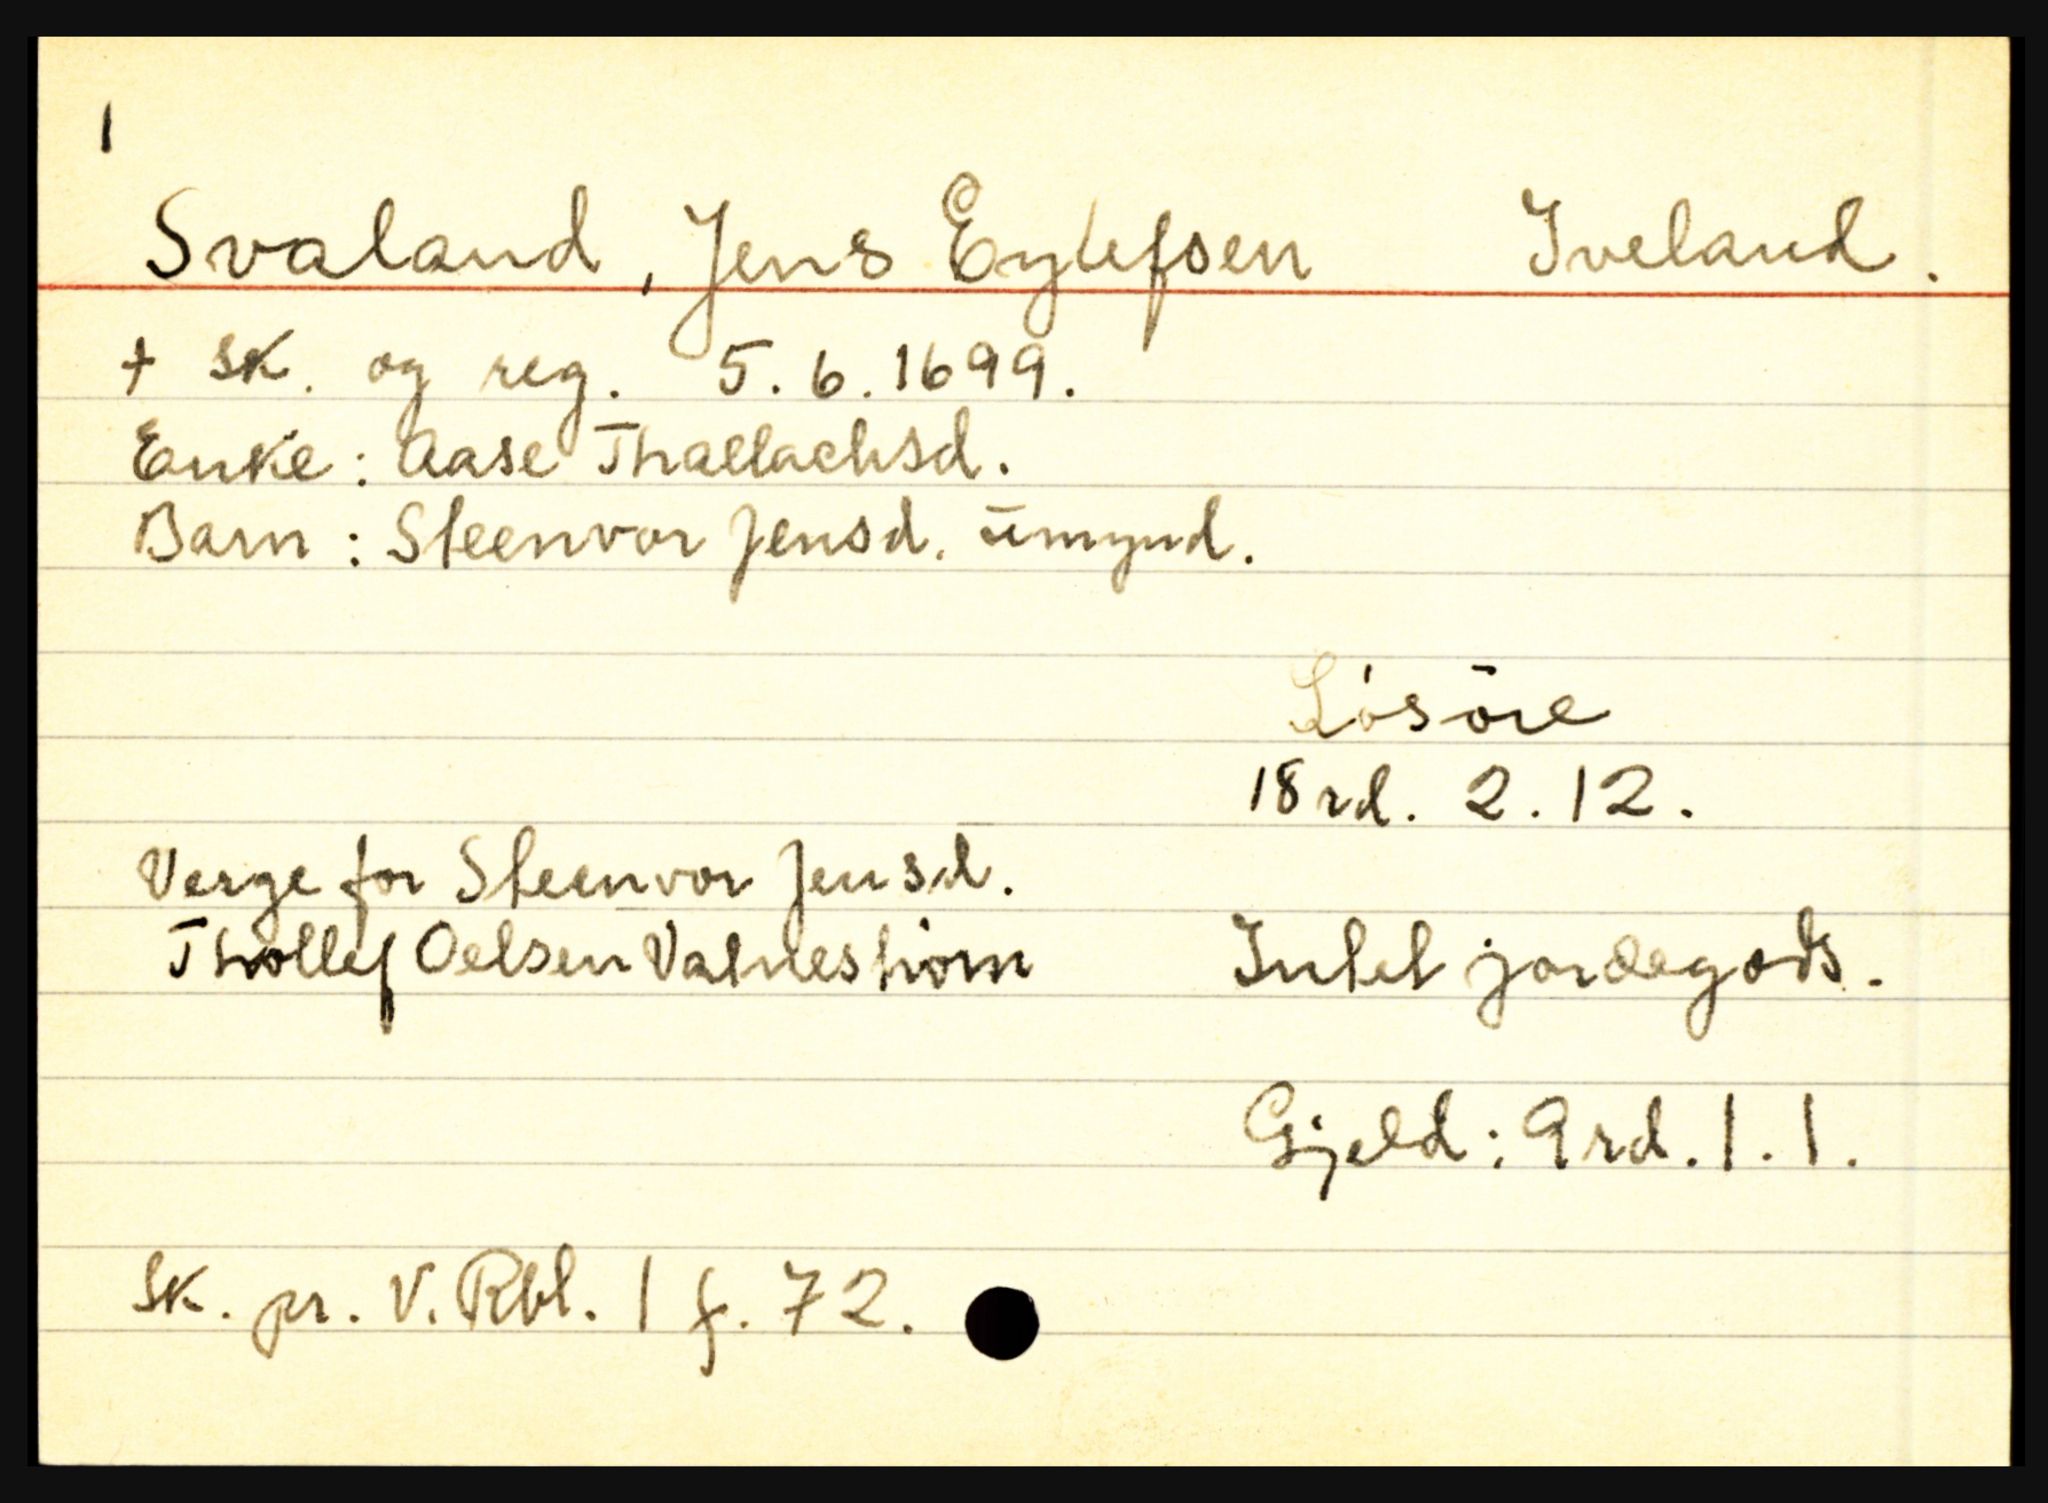 1
Svaland, Jens Eylefsen Iveland.
+ sk. og reg. 5.6.1699.
Enke: Aase Thaellachsd.
Barn: Steenvor Jensd. umynd.
Lösöre
18 rd. 2.12.
Verge for Steenvor Jensd.
Thollef Oelsen Vatnestrøm Intet jordegods.
Gjeld: 9 rd. 1.1.
Sk. pr. V. Rbl. 1 f. 72.